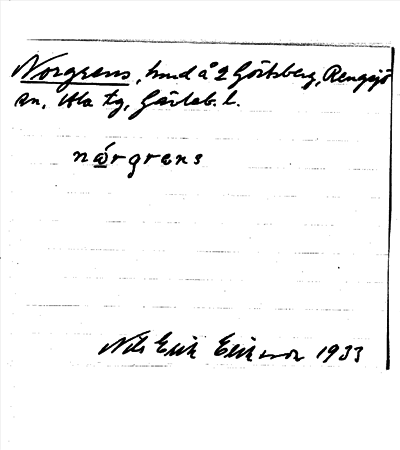 Norgrens, hmd å 2 Götsberg, Rengsjö
sn, Ala tg, Gävleb. l.
nǻrgrens
Nils Erik Eriksson 1933